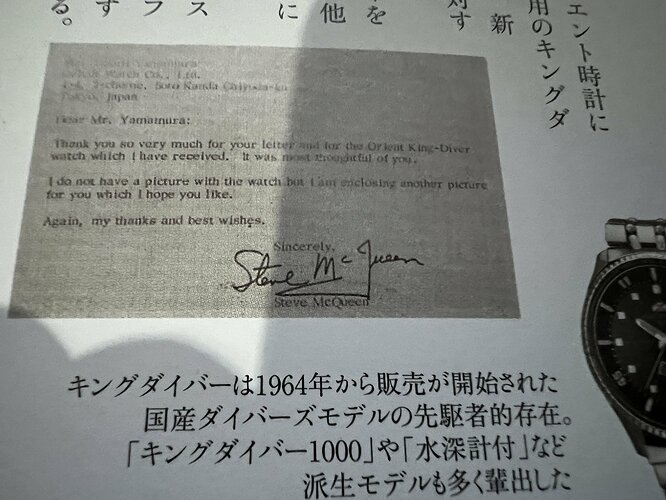 エント時計に
用のキングダ
新
対す
を
他
に
ス
フ
す
る。
Yamamura
Watch Co., Ltd.
2-chome, Soto Kanda Chiyoda-ku
Tokyo, Japan
Dear Mr. Yamamura:
Thank you so very much for your letter and for the Orient King-Diver
watch which I have received. It was most thoughtful of you.
I do not have a picture with the watch but I am enclosing another picture
for you which I hope you like.
Again, my thanks and best wishes.
Sincerely,
Steve McQueen
Steve McQueen
キングダイバーは1964年から販売が開始された
国産ダイバーズモデルの先駆者的存在。
「キングダイバー1000」や「水深計付」など
派生モデルも多く輩出した